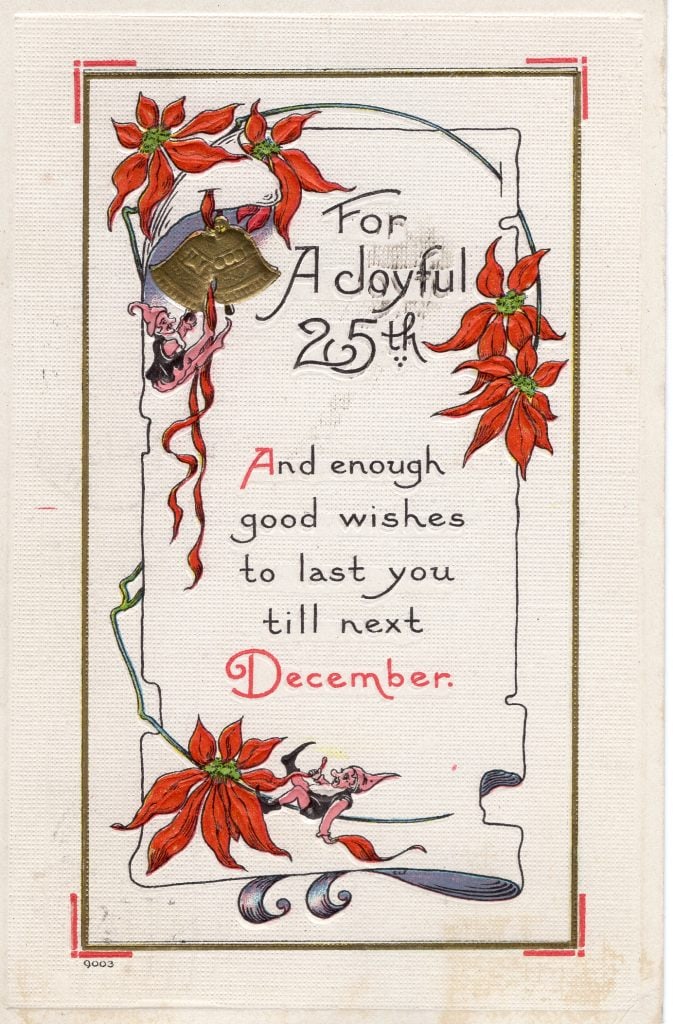 For
A Joyful
25th
And enough
good wishes
to last you
till next
December.
9003